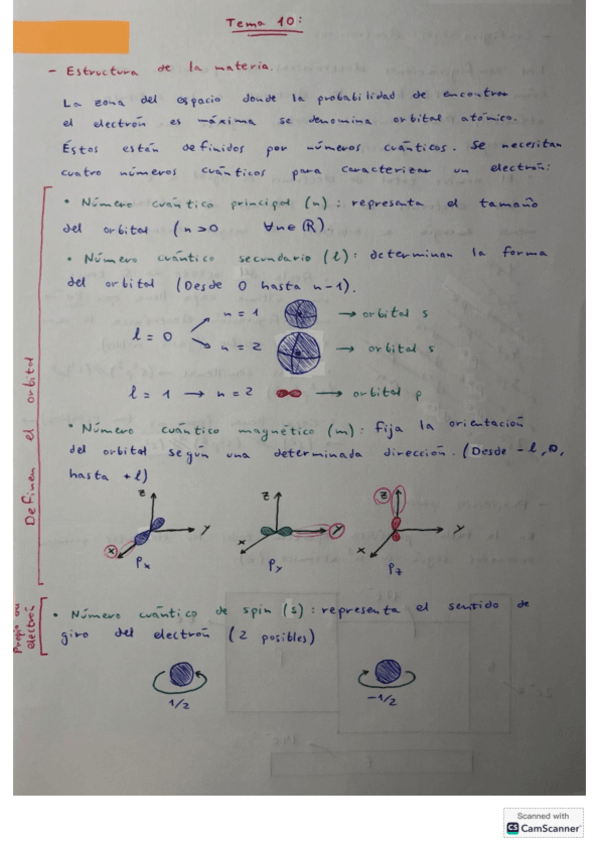 Tema 10:
- Estructura de la materia.
La zona del espacio donde la probabilidad de encontrar
el electrón es máxima se denomina orbital atómico.
Éstos están definidos por números cuánticos. Se necesitan
cuatro números cuánticos para caracterizar un electrón:
Definen el orbital
• Número cuántico principal (n): representa el tamaño
del orbital (n>0 ∀n∈ℝ)
• Número cuántico secundario (l): determinan la forma
del orbital (Desde 0 hasta n-1).
l = 0
n = 1 → orbital s
n = 2 → orbital s
l = 1 → n = 2 → orbital p
• Número cuántico magnético (m): fija la orientación
del orbital según una determinada dirección. (Desde -l, 0,
hasta +l)
z y x
z y x
z y x
Px Py Pz
Propio del electrón
• Número cuántico de spin (s): representa el sentido de
giro del electrón (2 posibles)
1/2 -1/2
Scanned with
CS CamScanner